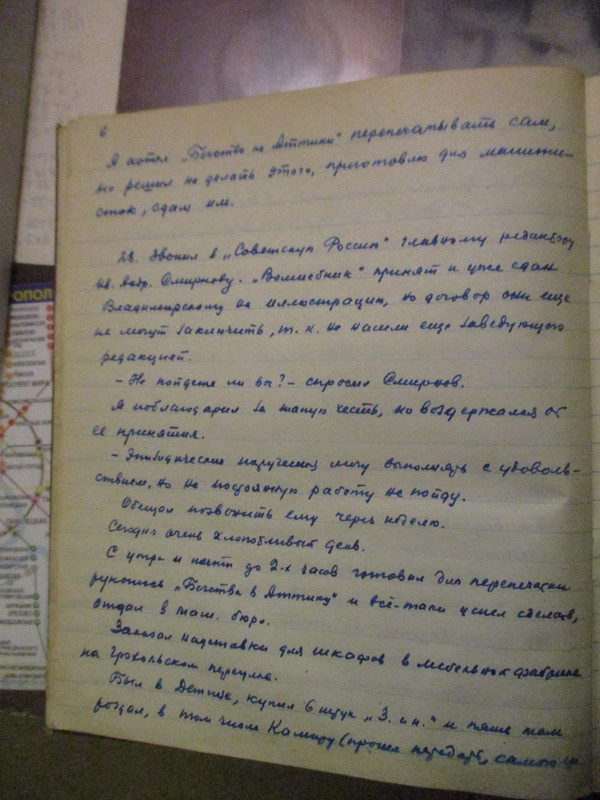 6
Я хотел „Бегство из Аттики" перепечатывать сам,
но решил не делать этого, приготовлю для машини-
сток, сдам им.
28. Звонил в „Советскую Россию" главному редактору
Смирнову. „Волшебник" принят и уже сдан
Владимирскому на иллюстрацию, но договор они еще
не могут заключить, т. к. не нашли еще заведующего
редакцией.
– Не пойдете ли вы? – спросил Смирнов.
Я поблагодарил за такую честь, но воздержался от
ее принятия.
– Эпизодические поручения могу выполнять с удоволь-
ствием, но на постоянную работу не пойду.
Обещал позвонить ему через неделю.
Сегодня очень хлопотливый день.
С утра и почти до 2-х часов готовил для перепечатки
рукопись „Бегства в Аттику" и всё-таки успел сделать,
отдал в маш. бюро.
Заказал надставки для шкафов в мебельной фабрике
на Грохольском переулке.
Был в Детгизе, купил 6 штук „З. и н." и пять там
роздал, в том числе Камиру (просил передать, самого
ОПОЛ